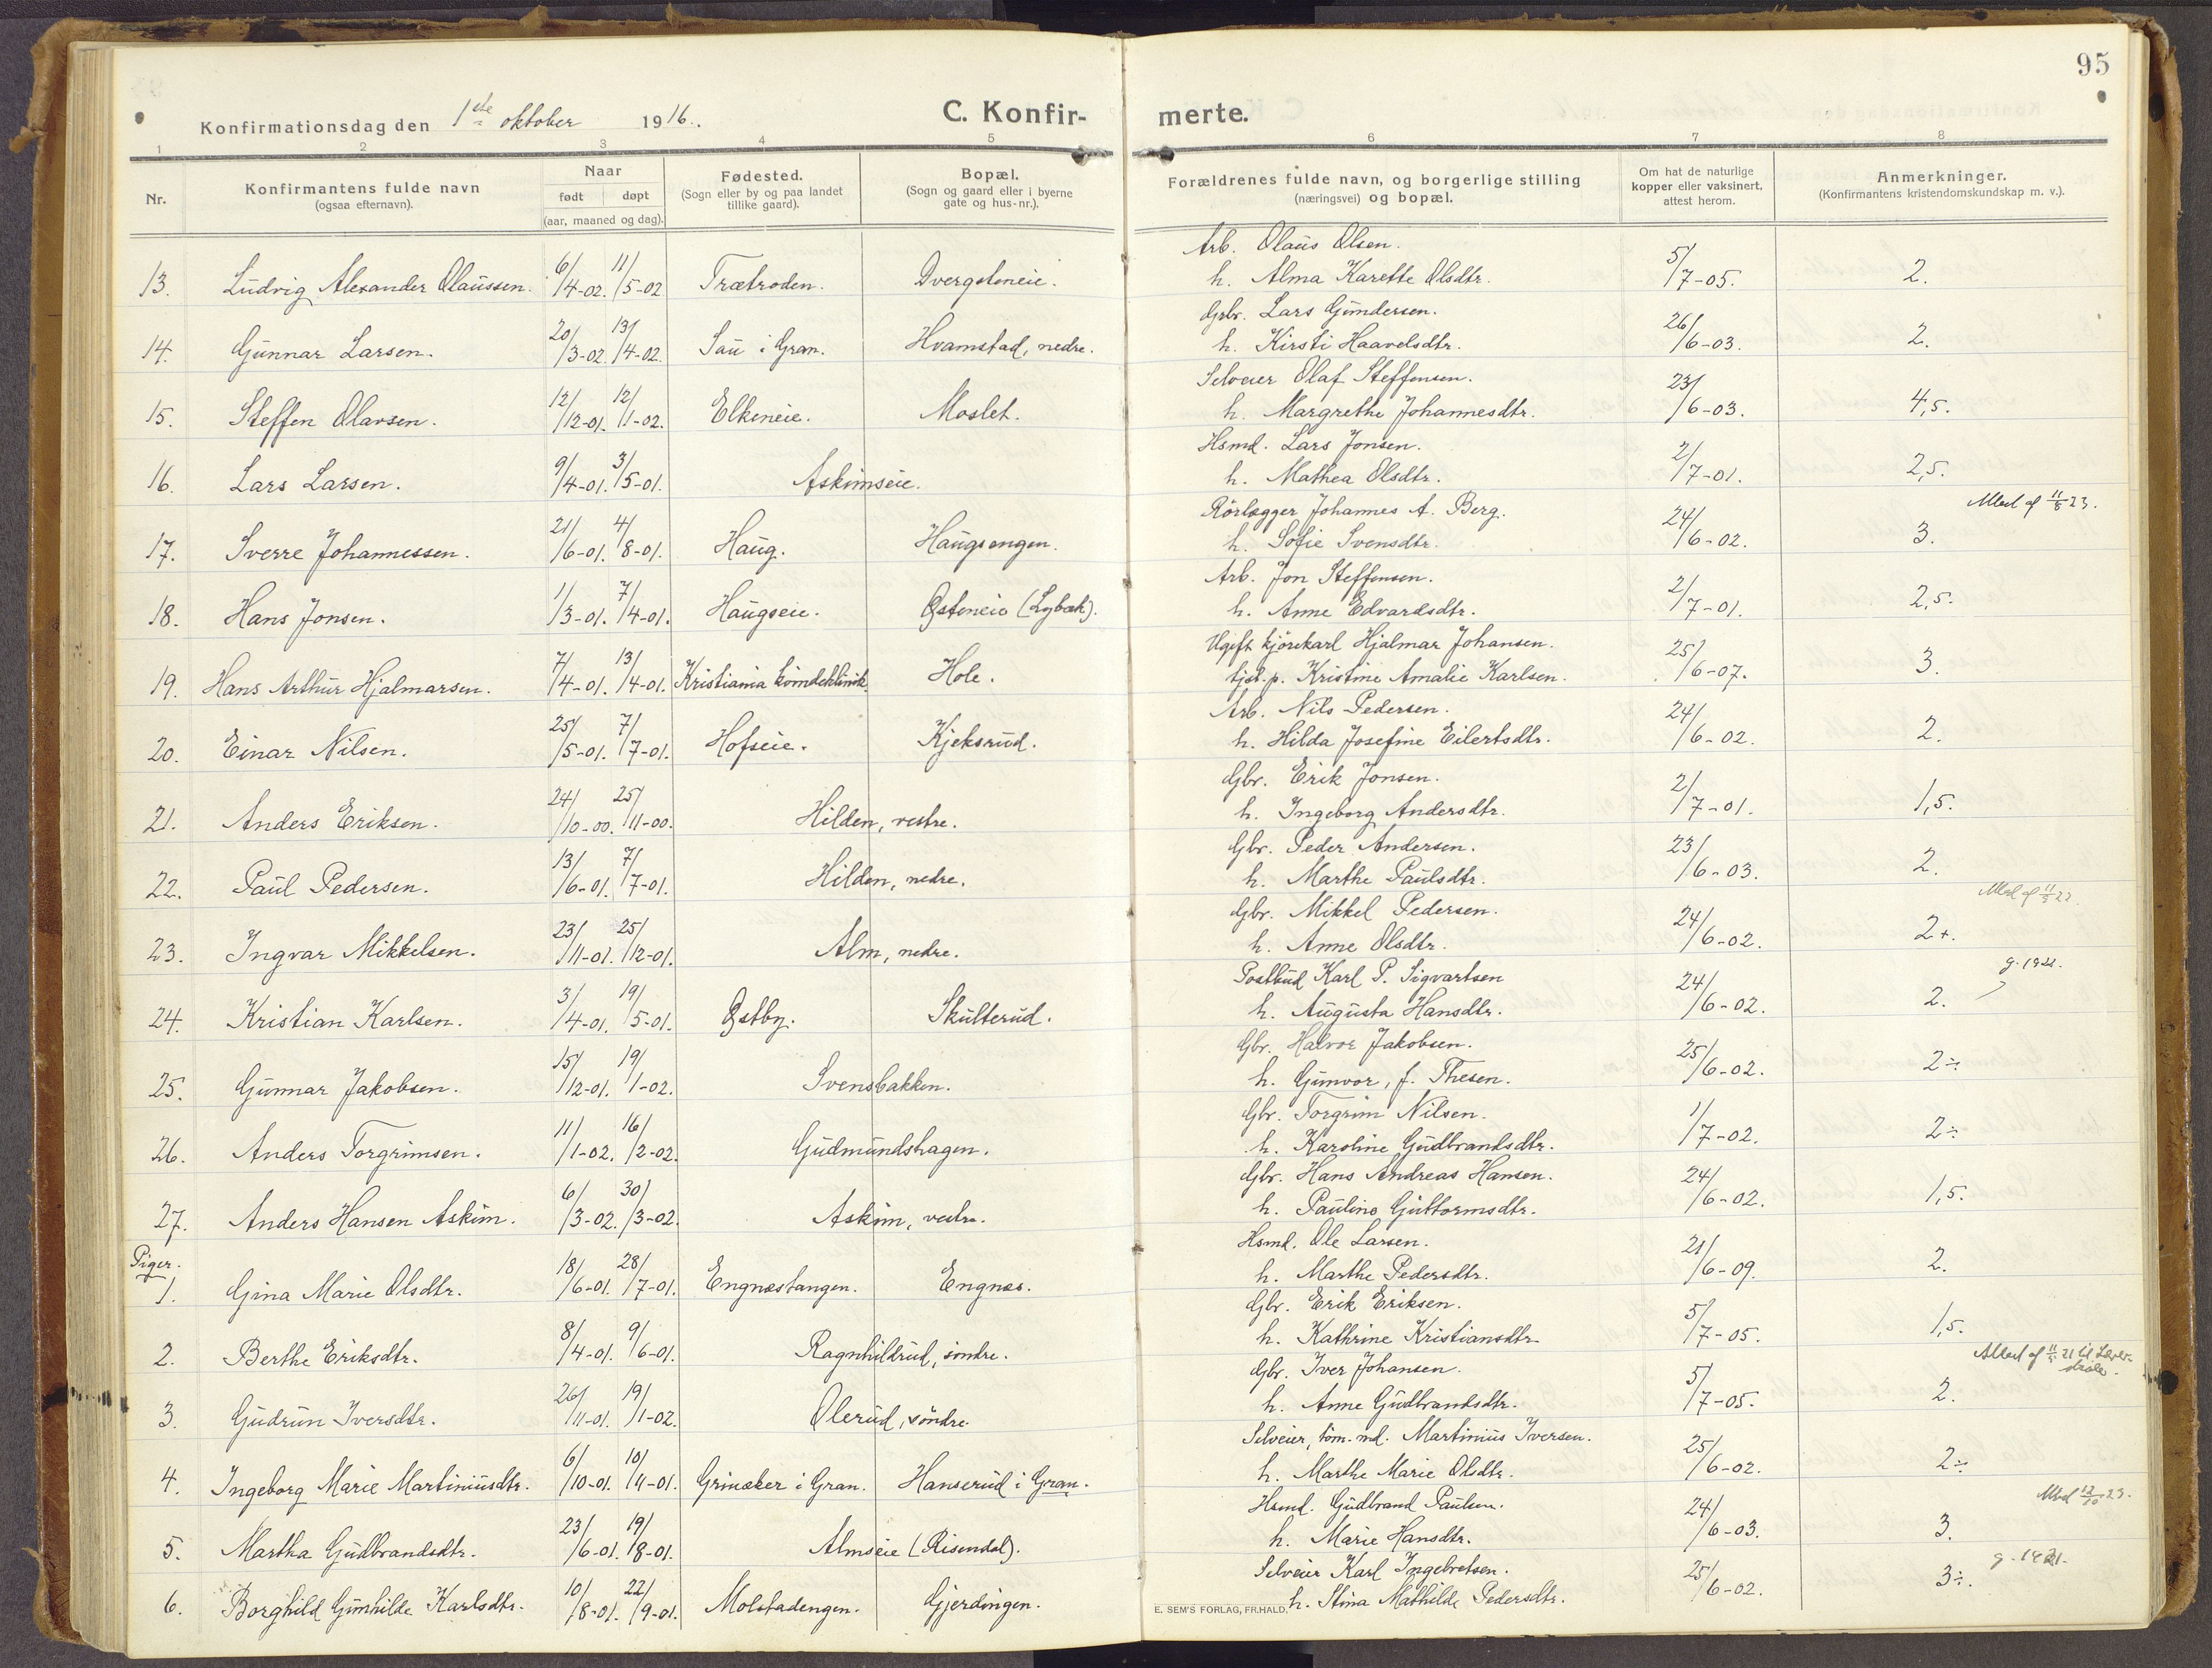 95
Konfirmationsdag den 1ste oktober 1916.
C. Konfir-
merte.
1 2 3 4 5 6 7 8
Nr.
Konfirmantens fulde navn
(ogsaa efternavn).
Naar
født døpt
(aar, maaned og dag).
Fødested.
(Sogn eller by og paa landet
tillike gaard).
Bopæl.
(Sogn og gaard eller i byerne
gate og hus-nr.).
Forældrenes fulde navn, og borgerlige stilling
(næringsvei) og bopæl.
Om hat de naturlige
kopper eller vaksinert,
attest herom.
Anmerkninger.
(Konfirmantens kristendomskundskap m. v.).
Arb. Olaus Olsen.
13. Ludvig Alexander Olaussen. 6/4-02. 11/5-02 Trætroden. Dvergsteneie. h. Alma Karette Olsdtr. 5/7-05. 2.
Gbr. Lars Gundersen.
14. Gunnar Larsen. 20/3-02. 13/4-02. Sau i Gran. Hvamstad, nedre. h. Kirsti Haavelsdtr. 26/6-03. 2.
Selveier Olaf Steffensen.
15. Steffen Olavsen. 12/12-01. 12/1-02. Elkeneie. Moslet. h. Margrethe Johannesdtr. 23/6-03. 4,5.
Hsmd. Lars Jonsen.
16. Lars Larsen. 9/4-01. 3/5-01. Askimseie. h. Mathea Olsdtr. 2/7-01. 2,5.
Rørlægger Johannes A. Berg.
17. Sverre Johannessen. 21/6-01. 4/8-01. Haug. Haugsengen. h. Sofie Svensdtr. 24/6-02. 3. Attest af 11/8 23.
Arb. Jon Steffensen.
18. Hans Jonsen. 1/3-01. 7/4-01. Haugseie. Østeneie (Lybæk). h. Anne Edvardsdtr. 2/7-01. 2,5.
Ugift kjørekarl Hjalmar Johansen.
19. Hans Arthur Hjalmarsen. 7/4-01. 13/4-01. Kristiania kvindeklinik. Hole. tjst.p. Kristine Amalie Karlsen. 25/6-07. 3.
Arb. Nils Pedersen.
20. Einar Nilsen. 25/5-01. 7/7-01. Hofseie. Kjeksrud. h. Hilda Josefine Eilertsdtr. 24/6-02. 2.
Gbr. Erik Jonsen.
21. Anders Eriksen. 24/10-00. 25/11-00. Hilden, vestre. h. Ingeborg Andersdtr. 2/7-01. 1,5.
Gbr. Peder Andersen.
22. Paul Pedersen. 13/6-01. 7/7-01. Hilden, nedre. h. Marthe Paulsdtr. 23/6-03. 2.
Gbr. Mikkel Pedersen.
23. Ingvar Mikkelsen. 23/11-01. 25/12-01. Alm, nedre. h. Anne Olsdtr. 24/6-02. 2+.
Postbud Karl P. Sigvartsen
24. Kristian Karlsen. 3/4-01. 19/5-01. Østby. Skulterud. h. Augusta Hansdtr. 24/6-02. 2.
Gbr. Halvor Jakobsen.
25. Gunnar Jakobsen. 15/12-01. 19/1-02. Svensbakken. h. Gunvor, f. Thesen. 25/6-02. 2÷
Gbr. Torgrim Nilsen.
26. Anders Torgrimsen. 11/1-02. 16/2-02. Gudmundshagen. h. Karoline Gudbrandsdtr. 1/7-02. 2÷
Gbr. Hans Andreas Hansen.
27. Anders Hansen Askim. 6/3-02. 30/3-02. Askim, vestre. h. Pauline Guttormsdtr. 24/6-02. 1,5.
Piger.
Hsmd. Ole Larsen.
1. Gina Marie Olsdtr. 18/6-01. 28/7-01. Engnæstangen. Engnæs. h. Marthe Pedersdtr. 21/6-09. 2.
Gbr. Erik Eriksen.
2. Berthe Eriksdtr. 8/4-01. 9/6-01. Ragnhildrud, søndre. h. Kathrine Kristiansdtr. 5/7-05. 1,5.
Gbr. Iver Johansen.
3. Gudrun Iversdtr. 26/11-01. 19/1-02. Olerud, søndre. h. Anne Gudbrandsdtr. 5/7-05. 2.
Selveier, töm.md. Martinius Iversen.
4. Ingeborg Marie Martiniusdtr. 6/10-01. 10/11-01. Grinaker i Gran. Hanserud i Gran. h. Marthe Marie Olsdtr. 25/6-02. 2÷
Hsmd. Gudbrand Paulsen.
5. Martha Gudbrandsdtr. 23/6-01. 19/8-01. Almseie (Risendal). h. Marie Hansdtr. 24/6-03. 3.
Selveier Karl Ingebretsen.
6. Borghild Gunhilde Karlsdtr. 10/8-01. 22/9-01. Molstadengen. Gjerdingen. h. Stina Mathilde Pedersdtr. 25/6-02. 3÷.
E. SEM'S FORLAG, FR.HALD.